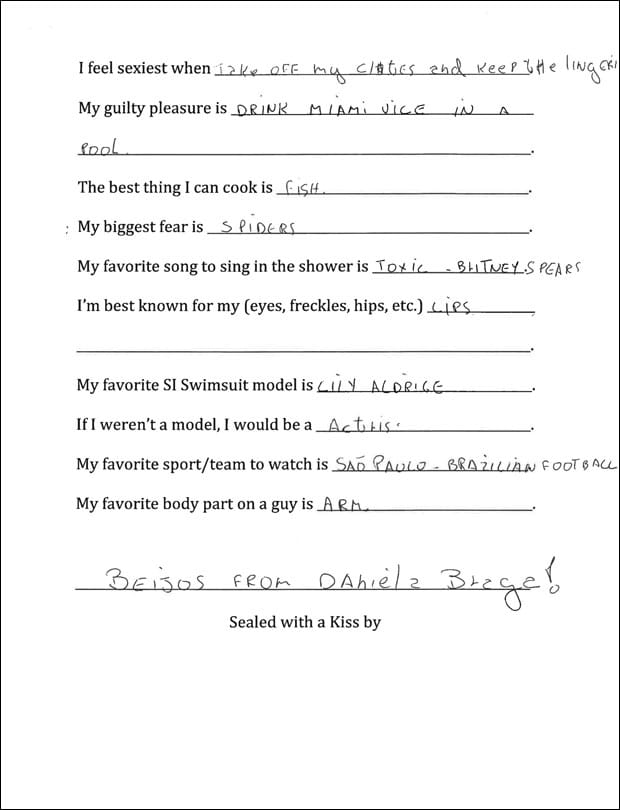 I feel sexiest when Take OFF my Clotes and KEEP the lingeri
My guilty pleasure is DRINK MIAMI VICE IN A
POOL.
The best thing I can cook is FISH.
: My biggest fear is SPIDERS.
My favorite song to sing in the shower is TOXIC - BRITNEY SPEARS
I'm best known for my (eyes, freckles, hips, etc.) LIPS
.
My favorite SI Swimsuit model is LILY ALDRIGE.
If I weren't a model, I would be a Actris.
My favorite sport/team to watch is SAO PAULO - BRAZILIAN FOOTBALL
My favorite body part on a guy is ARM.
BEIJOS FROM DANiela Braga!
Sealed with a Kiss by